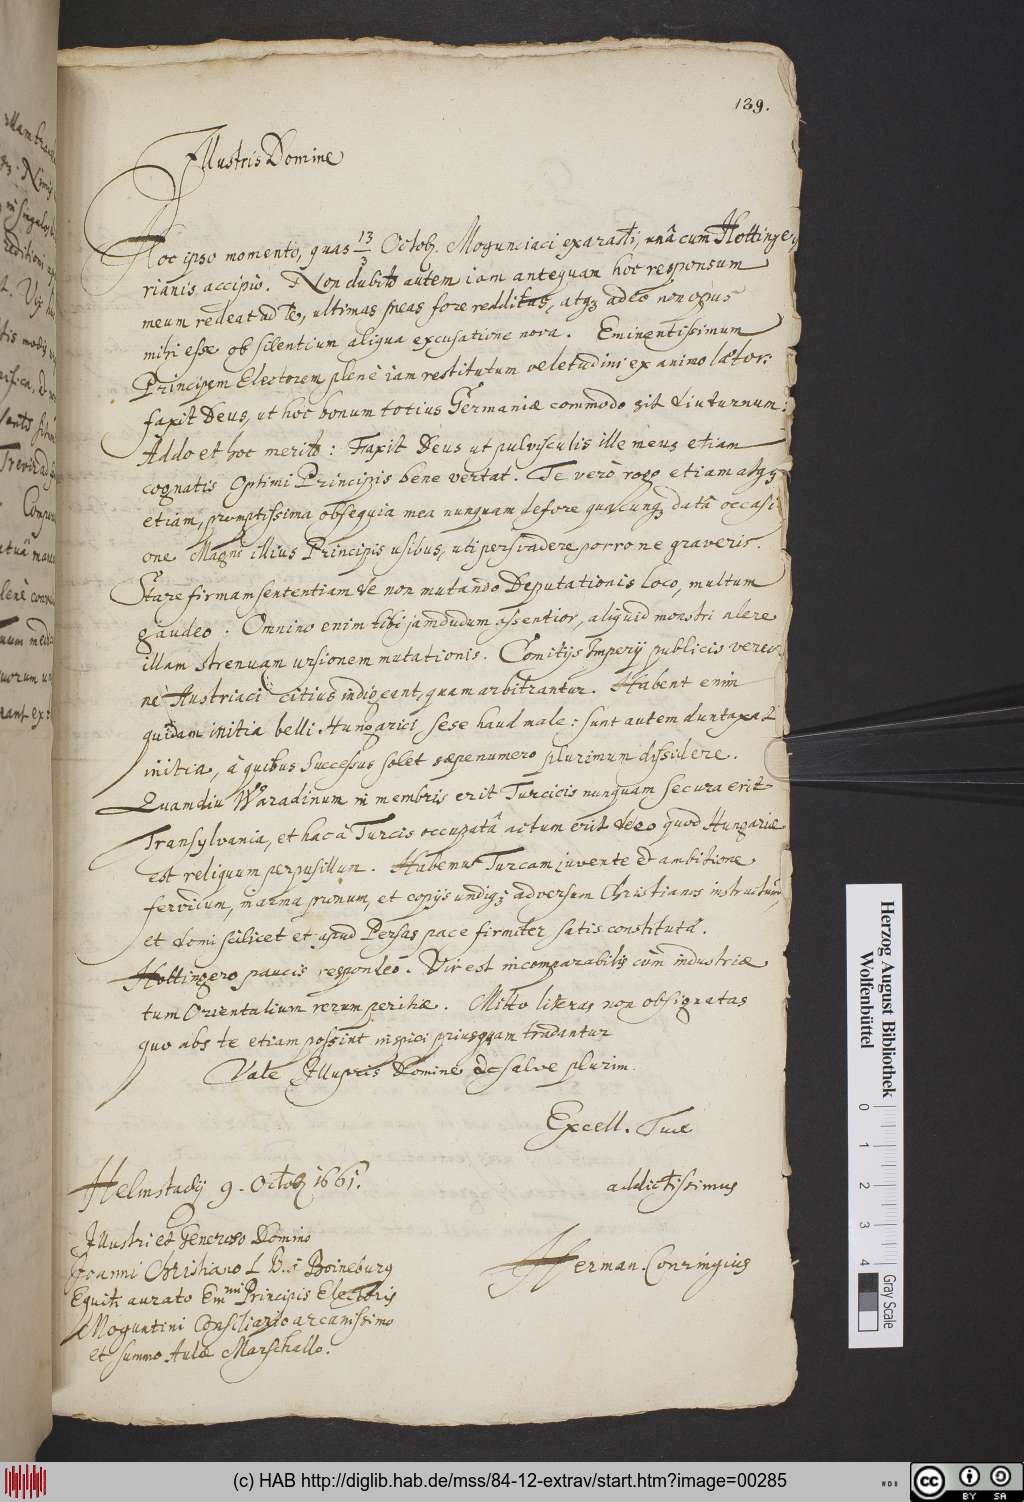 189.
Illustris Domine
Hoc ipso momento, quas 13/3 Octob. Moguntiaci exarasti, unâ cum Hottinge,
rianis accipio. Non dubito autem iam antequam hoc responsum
meum redeat ad Te, ultimas meas fore redditas, atq3 adeò non opus
mihi esse ob silentium aliqua excusatione nova. Eminentissimum
Principem Electorem plenè iam restitutum veletudini ex animo lætor:
faxit Deus, ut hoc bonum totius Germaniæ commodo sit diuturnum:
Addo et hoc meritò: Faxit Deus ut pulvisculis ille meus etiam
cognatis Optimi Principis bene vertat. Te verò rogo etiam atq3
etiam, promptissima obsequia mea nunquam defore quacunq3 datâ occasi
one Magni illius Principis usibus, uti persvadere porro ne graveris.
Stare firmam sententiam de non mutando Deputationis loco, multum
gaudeo: Omnino enim tibi jamdudum assentior, aliquid monstri alere
illam strenuam ursionem mutationis. Comitijs Imperij publicis vereor
ne Austriaci citius indigeant, quam arbitrantur. Habent enim
quidam initia belli Hungarici sese haud male: sunt autem duntaxat
initia, à quibus successus solet sæpenumero plurimum dissidere.
Quamdiu Waradinum in membris erit Turcicis nunquam secura erit
Transylvania, et hac à Turcis occupatâ actum erit de eo quod Hungariæ
est reliquum perpusillum. Habemus Turcam juvente et ambitione
fervidum, in arma pronum, et copijs undiq3 adversum Christianos instructum,
et domi scilicet et apud Persas pace firmiter satis constitutâ.
Hottingero paucis respondeo. Vir est incomparabilis cùm industriæ
tum Orientalium rerum peritiæ. Mitto literas non obsignatas
quo abs te etiam possint inspici priusquam tradantur
Vale Illustris Domine et salve plurim.
Excell. Tuæ
Helmstadij 9. Octob 1661.
addictissimus
Illustri et Generoso Domino
Joanni Christiano L B. à Boineburg
Equiti aurato Emmi Principis Electoris
Moguntini Consiliario arcanissimo
et summo Aulæ Marschallo.
Herman. Conringius
Herzog August Bibliothek
Wolfenbüttel
0 1 2 3 4
Gray Scale
(c) HAB http://diglib.hab.de/mss/84-12-extrav/start.htm?image=00285
cc BY SA